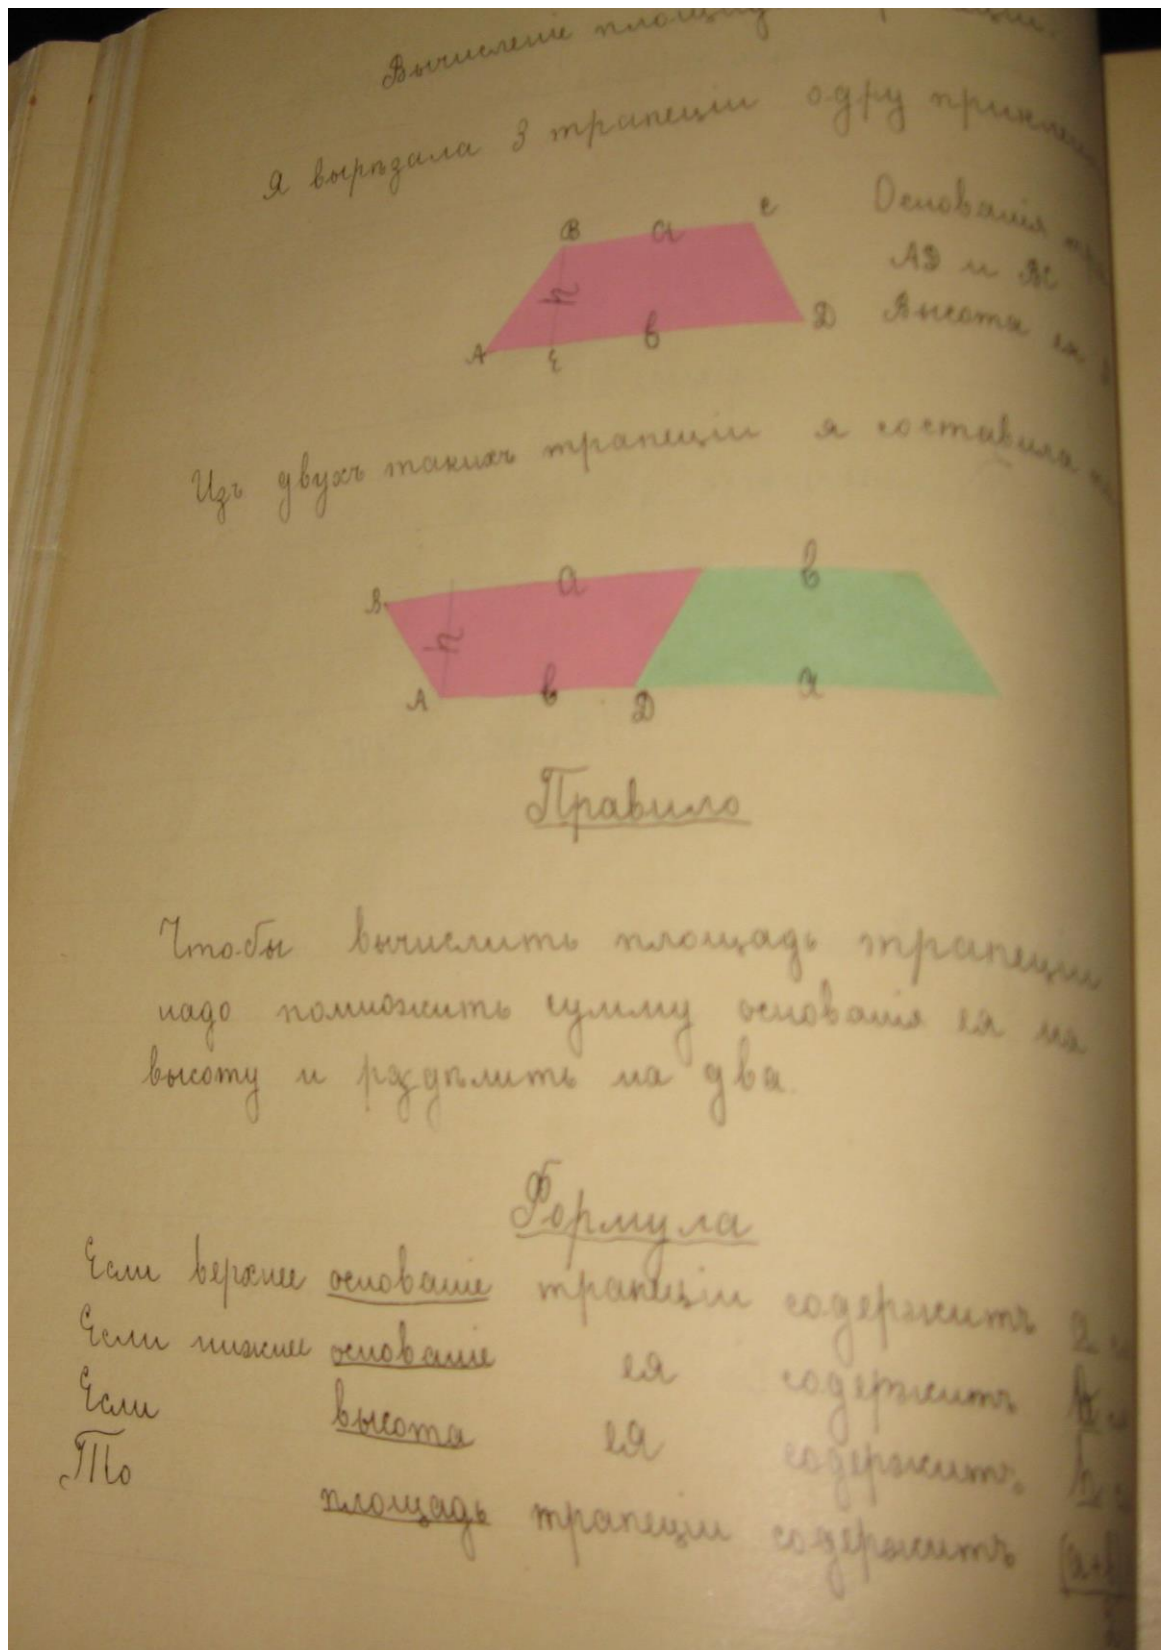 Вычисленіе площади
Я вырѣзала 3 трапеціи одну
B a C
h
A E в D
Основанія
AD и BC
Высота ея
Изъ двухъ такихъ трапеціи я составила
B a в
h
A в D a
Правило
Чтобы вычислить площадь трапеции
надо помножить сумму основанія ея на
высоту и раздѣлить на два.
Формула
Если верхнее основаніе трапеціи содержитъ a
Если нижнее основаніе ея содержитъ
Если высота ея содержитъ h
То площадь трапеціи содержитъ (a+b)